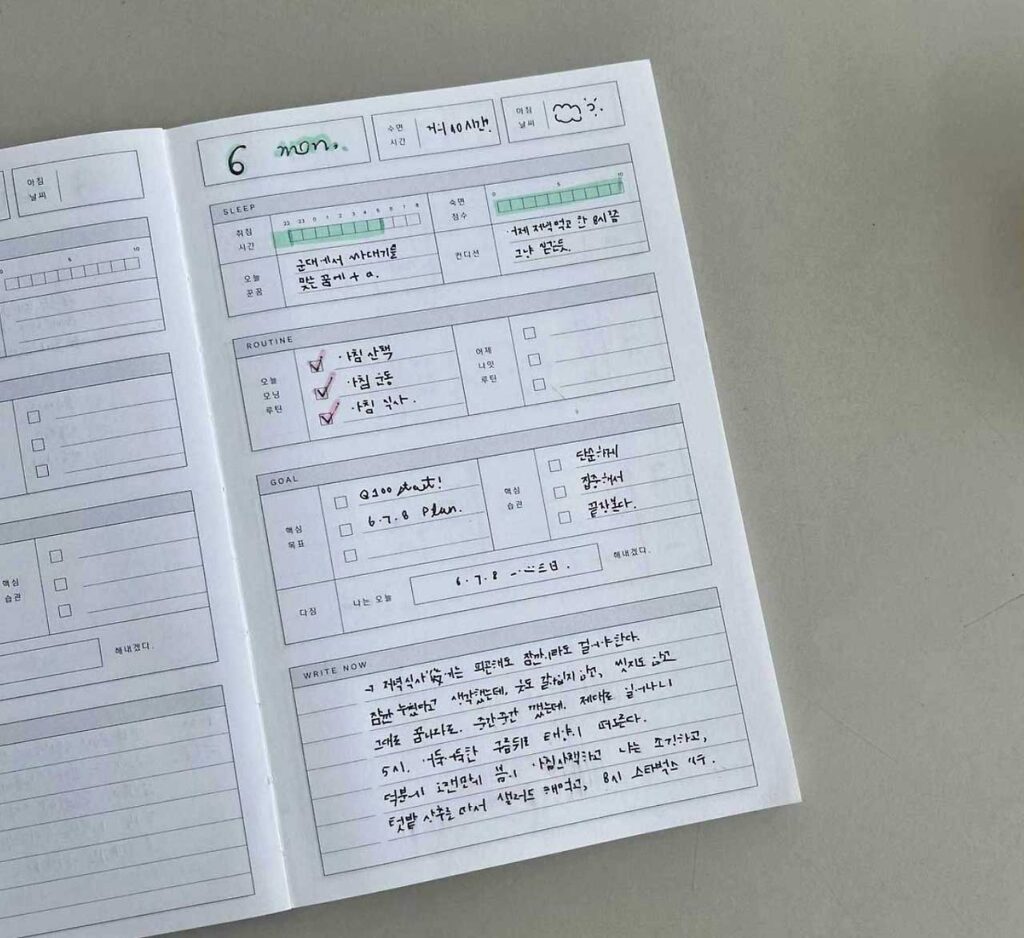 아침
날씨
10
핵심
습관
해내겠다.
6 mon.
수면
시간
거의 10시간.
아침
날씨
SLEEP
취침
시간
22 23 0 1 2 3 4 5 6 7 8
숙면
점수
0 5 10
오늘
꾼꿈
군대에서 싸대기를
맞는 꿈에 + a.
컨디션
어제 저녁먹고 한 8시쯤
그냥 잠든듯.
ROUTINE
오늘
모닝
루틴
아침 산책
아침 운동
아침 식사.
어제
나잇
루틴
GOAL
핵심
목표
Q100 start!
6.7.8 plan.
핵심
습관
단순하게
집중해서
끝장본다.
다짐
나는 오늘
6.7.8
해내겠다.
WRITE NOW
→ 저녁식사 後에는 피곤해도 잠깐이라도 걸어야한다.
잠깐 누웠다고 생각했는데, 옷도 갈아입지 않고, 씻지도 않고
그대로 꿈나라로. 중간중간 깼는데, 제대로 일어나니
5시. 어둑어둑한 구름뒤로 태양이 떠오른다.
덕분에 오랜만에 봄이 아침산책하고 나는 조깅하고,
텃밭 상추를 따서 샐러드 해먹고, 8시 스타벅스